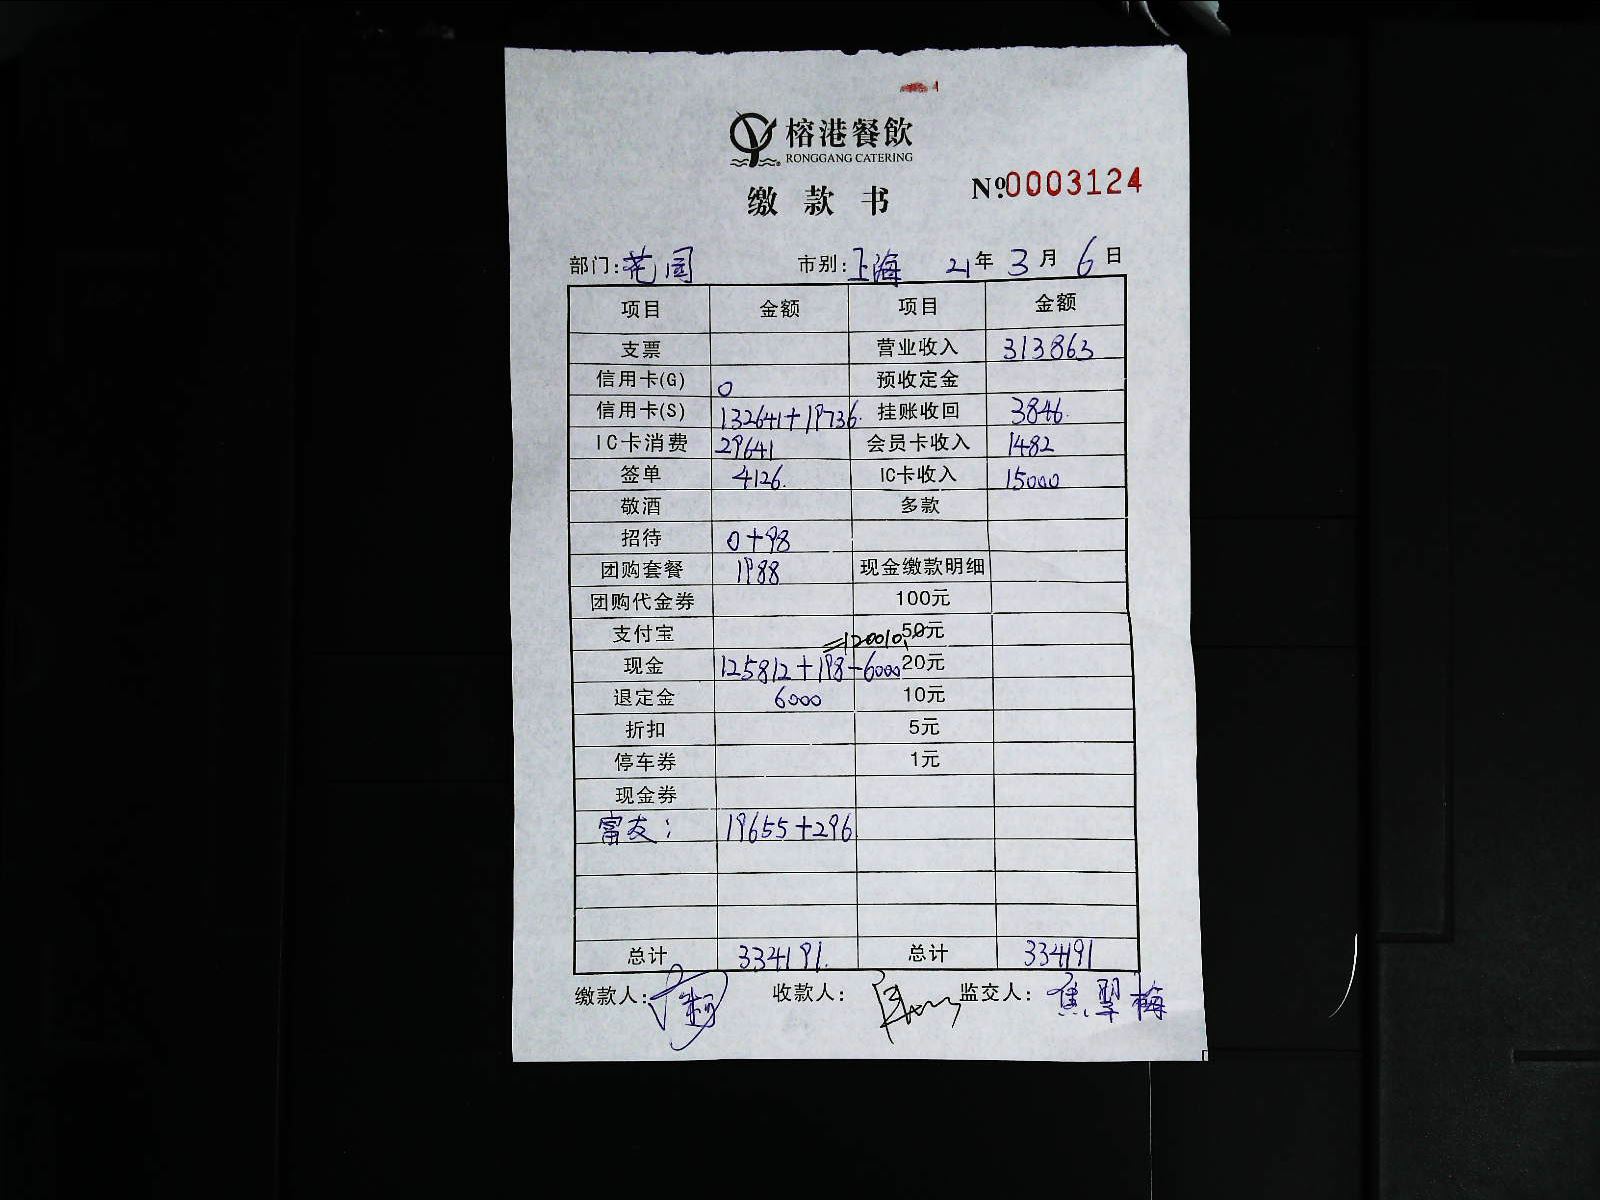 榕港餐飲
RONGGANG CATERING
缴款书
№0003124
部门:花园 市别:上海 21年3月6日
项目 金额 项目 金额
支票 营业收入 313863
信用卡(G) 0 预收定金
信用卡(S) 132641+19736 挂账收回 3846.
IC卡消费 29641 会员卡收入 1482
签单 4126. IC卡收入 15000
敬酒 多款
招待 0+98
团购套餐 1988 现金缴款明细
团购代金券 100元
支付宝 50元
=120010
现金 125812+198-6000 20元
退定金 6000 10元
折扣 5元
停车券 1元
现金券
富友: 19655+296
总计 334191. 总计 334191
缴款人: 收款人: 监交人:焦翠梅